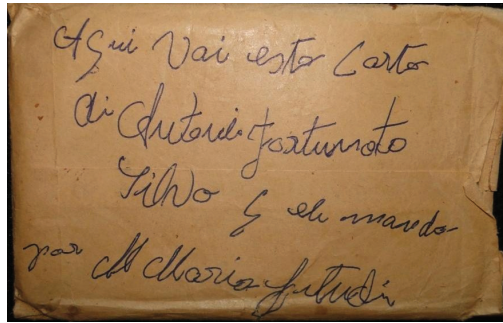 Aqui Vai esta Carta
di Antonio Fortunato
Silvo ele manda
por Maria